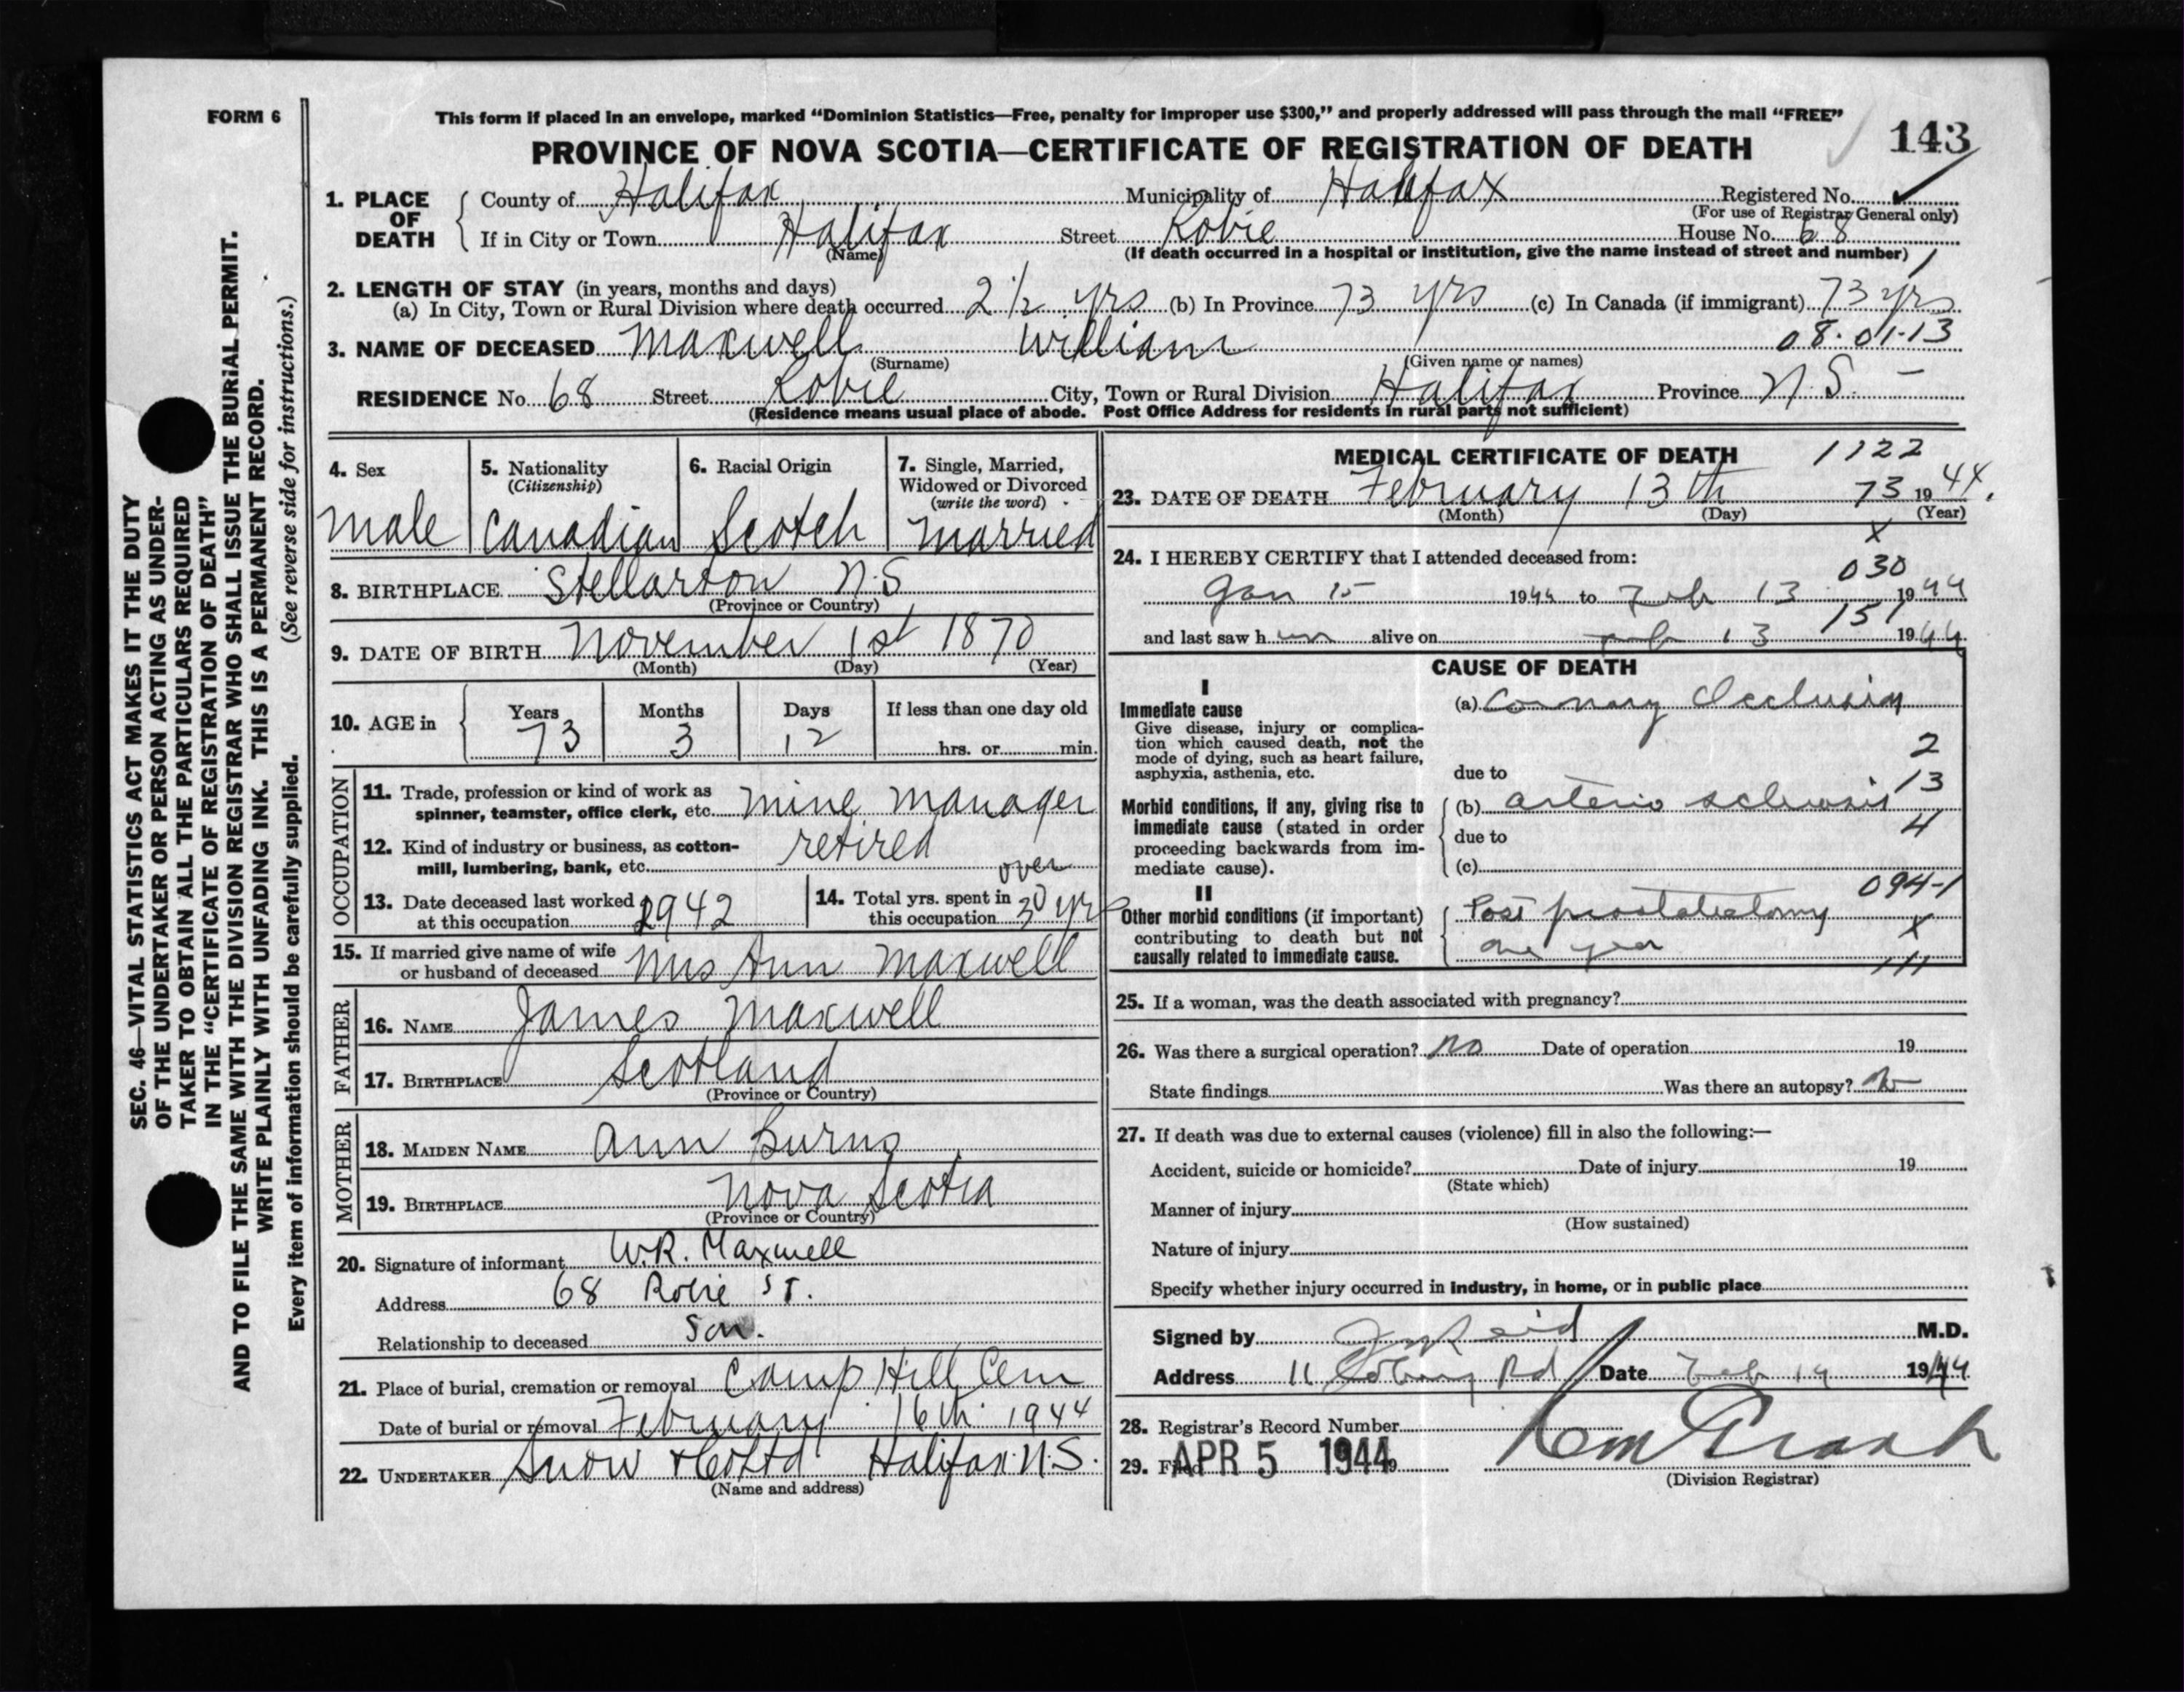 FORM 6
This form if placed in an envelope, marked “Dominion Statistics—Free, penalty for improper use $300,” and properly addressed will pass through the mail “FREE”
143
PROVINCE OF NOVA SCOTIA—CERTIFICATE OF REGISTRATION OF DEATH
1. PLACE OF DEATH
County of Halifax Municipality of Halifax Registered No.
(For use of Registrar General only)
If in City or Town Halifax Street Robie House No. 68
(Name) (If death occurred in a hospital or institution, give the name instead of street and number)
2. LENGTH OF STAY (in years, months and days)
(a) In City, Town or Rural Division where death occurred 2 1/2 yrs (b) In Province 73 yrs (c) In Canada (if immigrant) 73 yrs
08.01-13
3. NAME OF DECEASED Maxwell William
(Surname) (Given name or names)
RESIDENCE No. 68 Street Robie City, Town or Rural Division Halifax Province N.S. -
(Residence means usual place of abode. Post Office Address for residents in rural parts not sufficient)
4. Sex
male
5. Nationality
(Citizenship)
Canadian
6. Racial Origin
Scotch
7. Single, Married,
Widowed or Divorced
(write the word)
married
8. BIRTHPLACE Stellarton N.S
(Province or Country)
9. DATE OF BIRTH November 1st 1870
(Month) (Day) (Year)
10. AGE in
Years Months Days If less than one day old
73 3 12 hrs. or min.
OCCUPATION
11. Trade, profession or kind of work as
spinner, teamster, office clerk, etc. mine manager
12. Kind of industry or business, as cotton-
mill, lumbering, bank, etc. retired
13. Date deceased last worked
at this occupation 1942
14. Total yrs. spent in
this occupation over 30 yrs
15. If married give name of wife
or husband of deceased Mrs Ann Maxwell
FATHER
16. NAME James Maxwell
17. BIRTHPLACE Scotland
(Province or Country)
MOTHER
18. MAIDEN NAME Ann Burns
19. BIRTHPLACE Nova Scotia
(Province or Country)
20. Signature of informant W.R. Maxwell
Address 68 Robie ST.
Relationship to deceased Son.
21. Place of burial, cremation or removal Camp Hill Cem
Date of burial or removal February 16th 1944
22. UNDERTAKER Snow & Co Ltd Halifax N.S.
(Name and address)
MEDICAL CERTIFICATE OF DEATH 1122
23. DATE OF DEATH February 13th 73 1944.
(Month) (Day) (Year)
X
24. I HEREBY CERTIFY that I attended deceased from:
030
Jan 15 1944 to Feb 13 1944
151
and last saw him alive on Feb 13 1944
CAUSE OF DEATH
I
Immediate cause
Give disease, injury or complica-
tion which caused death, not the
mode of dying, such as heart failure,
asphyxia, asthenia, etc.
(a) Coronary Occlusion
2
due to
13
Morbid conditions, if any, giving rise to
immediate cause (stated in order
proceeding backwards from im-
mediate cause).
(b) arterio sclerosis
4
due to
(c)
094-1
II
Other morbid conditions (if important)
contributing to death but not
causally related to immediate cause.
Post prostatectomy
X
one year
111
25. If a woman, was the death associated with pregnancy?
26. Was there a surgical operation? no Date of operation 19
State findings Was there an autopsy? no
27. If death was due to external causes (violence) fill in also the following:—
Accident, suicide or homicide? Date of injury 19
(State which)
Manner of injury
(How sustained)
Nature of injury
Specify whether injury occurred in industry, in home, or in public place
Signed by Reid M.D.
Address 11 Coburg Rd Date Feb 14 1944
28. Registrar's Record Number
29. Filed APR 5 1944
(Division Registrar)
SEC. 46—VITAL STATISTICS ACT MAKES IT THE DUTY
OF THE UNDERTAKER OR PERSON ACTING AS UNDER-
TAKER TO OBTAIN ALL THE PARTICULARS REQUIRED
IN THE “CERTIFICATE OF REGISTRATION OF DEATH”
AND TO FILE THE SAME WITH THE DIVISION REGISTRAR WHO SHALL ISSUE THE BURIAL PERMIT.
WRITE PLAINLY WITH UNFADING INK. THIS IS A PERMANENT RECORD.
Every item of information should be carefully supplied. (See reverse side for instructions.)